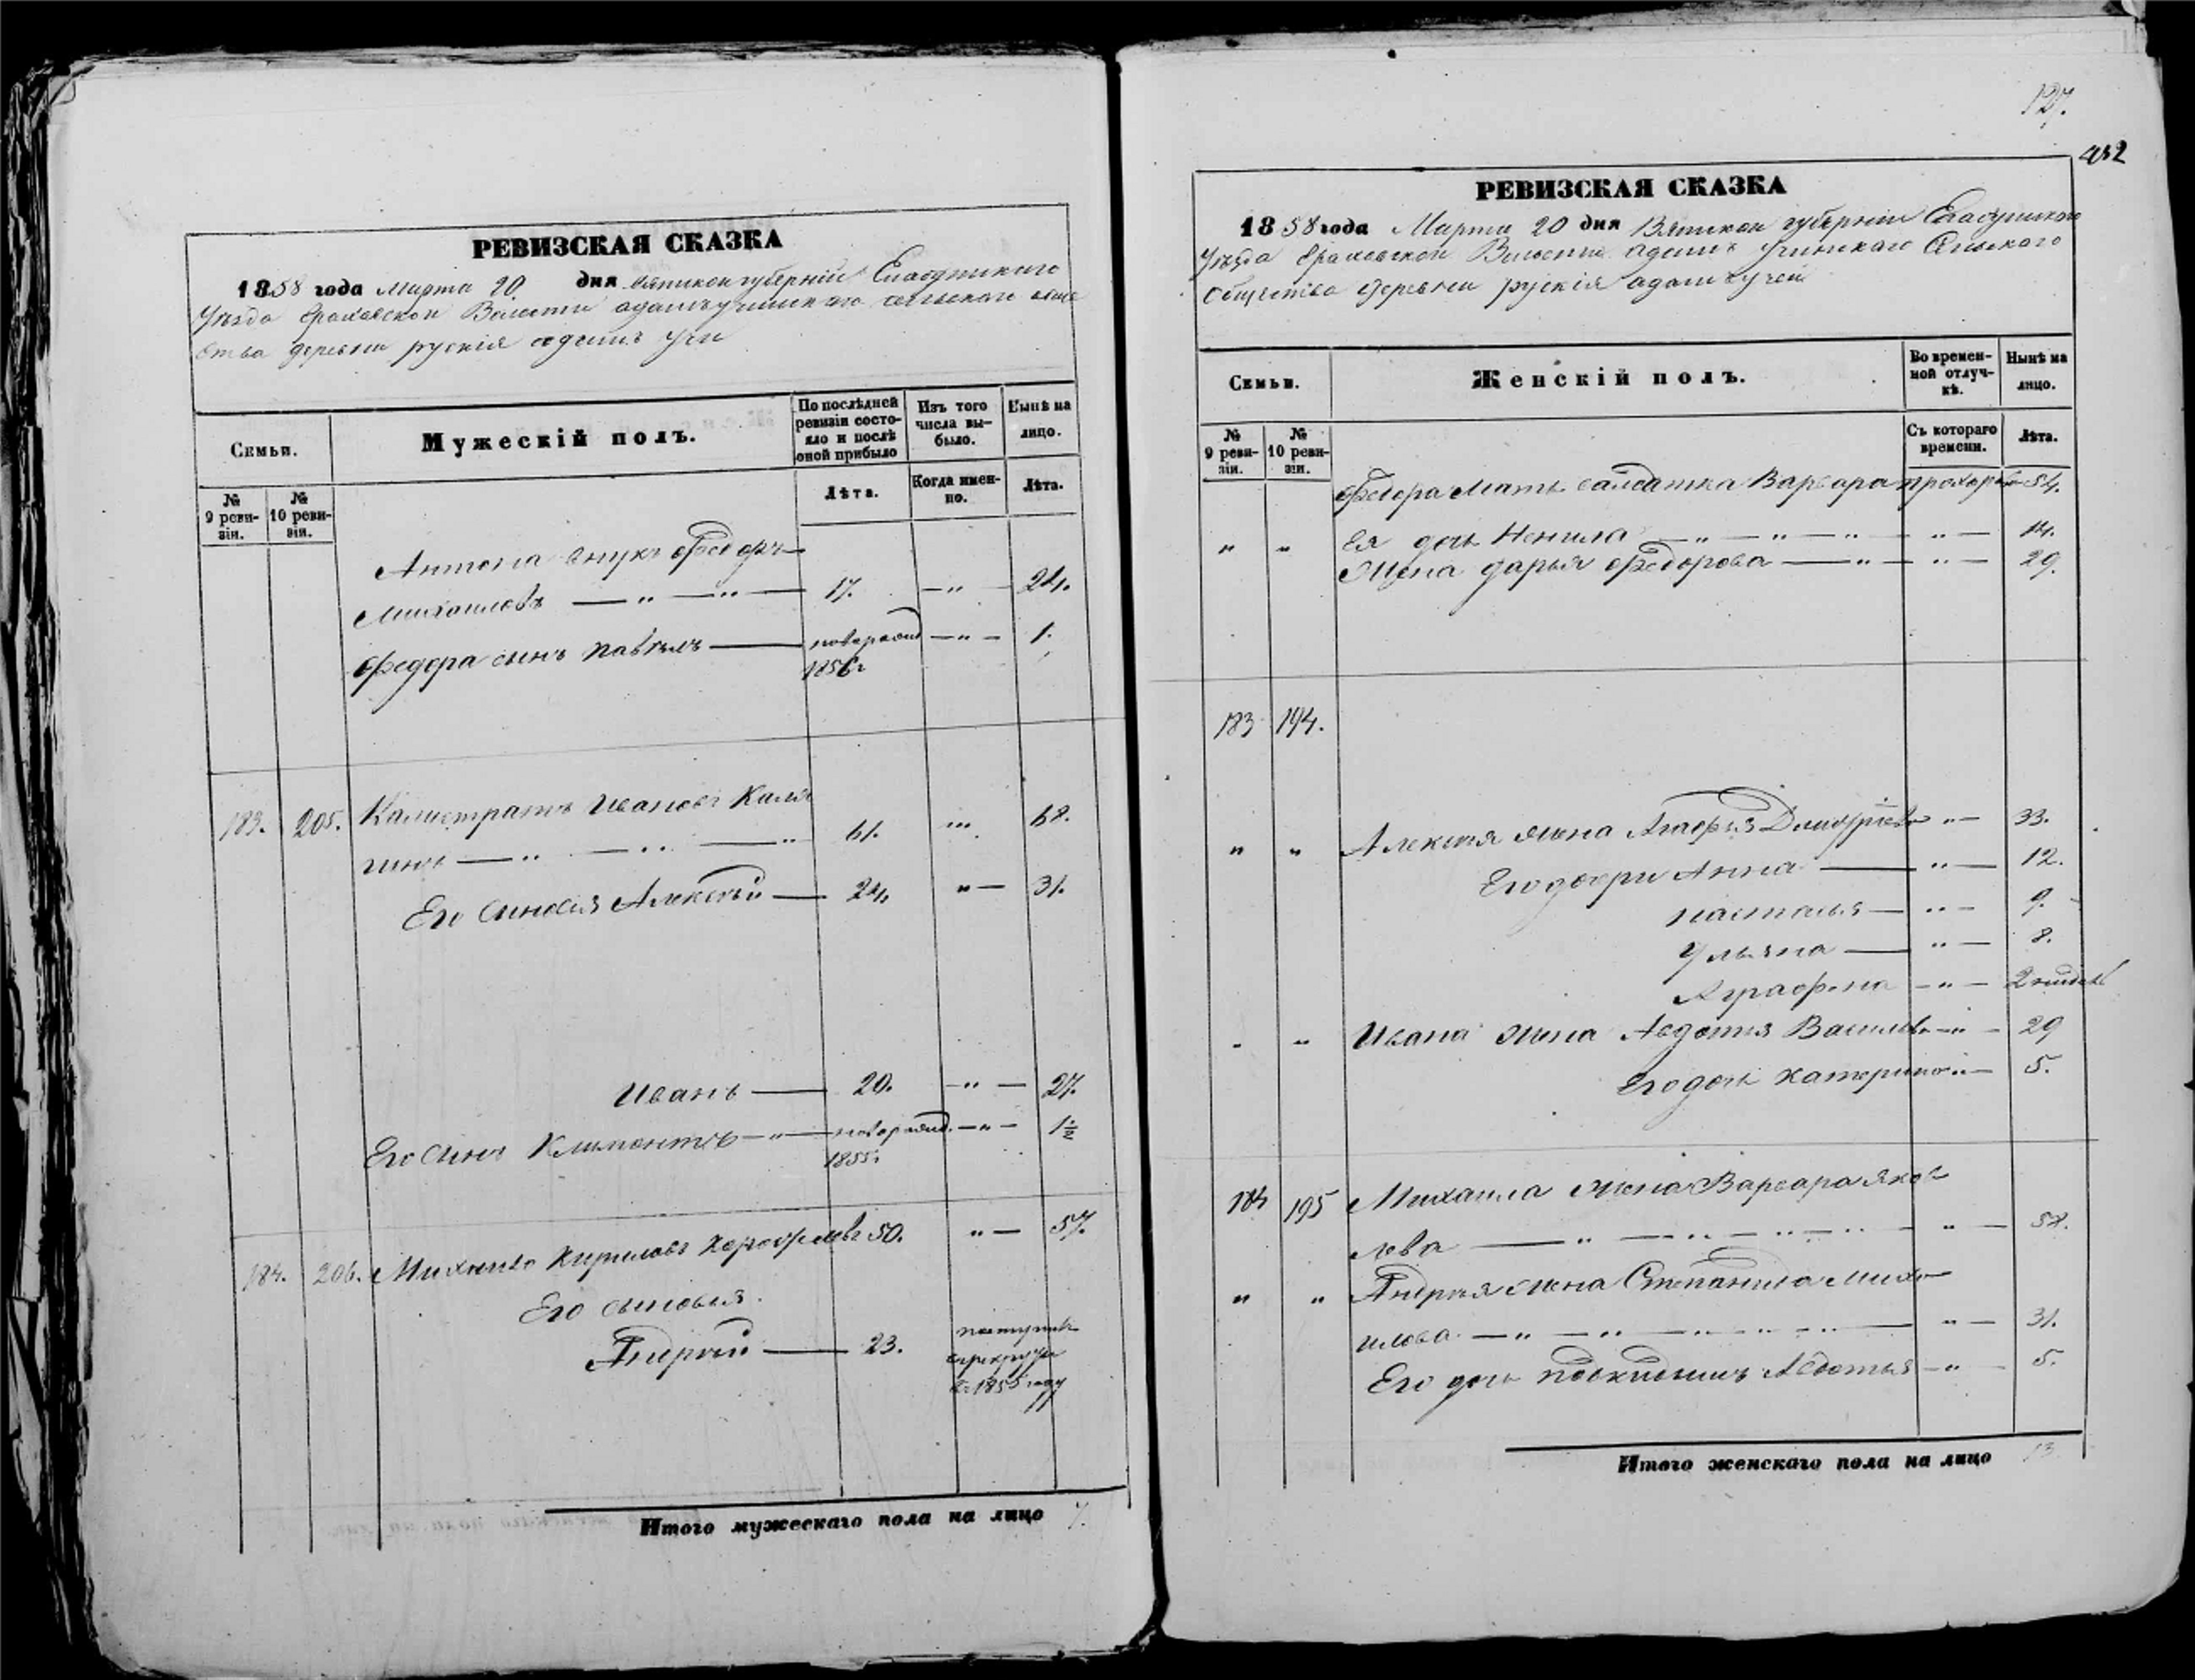 РЕВИЗСКАЯ СКАЗКА
1858 года Марта 20 дня Вятской губерніи Елабужскаго
Уѣзда Граховской Волости адамъучинскаго сельскаго обще
ства деревни рускія адамъ учи
Семьи.
Мужескій полъ.
По послѣдней ревизіи состояло и послѣ оной прибыло
Изъ того числа выбыло.
Нынѣ на лицо.
№ 9 ревизіи.
№ 10 ревизіи.
Лѣта.
Когда именно.
Лѣта.
Антона внукъ Федоръ
Михаиловъ — " — " — 17. — " — 24.
Федора сынъ Павелъ — новорожд — " — 1.
1856 г
183. 205. Калистратъ Ивановъ Каля
гинъ — " — " — " 61. " 68.
Его сыновья Алексѣй — 24. " — 31.
Иванъ — 20. — " — 27.
Его сынъ Климонтъ — " — новорожд. — " — 1½
1855 г
184. 206. Михаило Кириловъ 50. " — 57.
Его сыновья.
Андрей — 23. поступилъ
в рекруты
в 1855 году
Итого мужескаго пола на лицо 7.
127.
452
РЕВИЗСКАЯ СКАЗКА
1858 года Марта 20 дня Вятской губерніи Елабужскаго
Уѣзда Граховской Волости адамъ учинскаго Сельскаго
Общества деревни рускія адамъ учей
Семьи.
Женскій полъ.
Во временной отлучкѣ.
Нынѣ на лицо.
№ 9 ревизіи.
№ 10 ревизіи.
Съ котораго времени.
Лѣта.
Федора Мать салдатка Варвара прохоро 54.
" " Ея дочь Ненила — " — " — " — " — 14.
Жена дарья Федорова — " — " — 29.
183 194.
" " Алексея жена Агафья Дмитріева " — 33.
Его дочери Анна — " — 12.
настасья — " — 9.
Ульяна — " — 8.
Аграфена — " — 2 недели
" " Ивана жена Авдотья Василева — " — 29
Его дочь катерина " — 5.
184 195 Михаила жена Варвара Яков
лева — " — " — " — " " — 58.
" " Андрея жена Степанида Миха
илова — " — " — " — " — " — 31.
Его дочь подкидышъ Авдотья — " — 5.
Итого женскаго пола на лицо 13